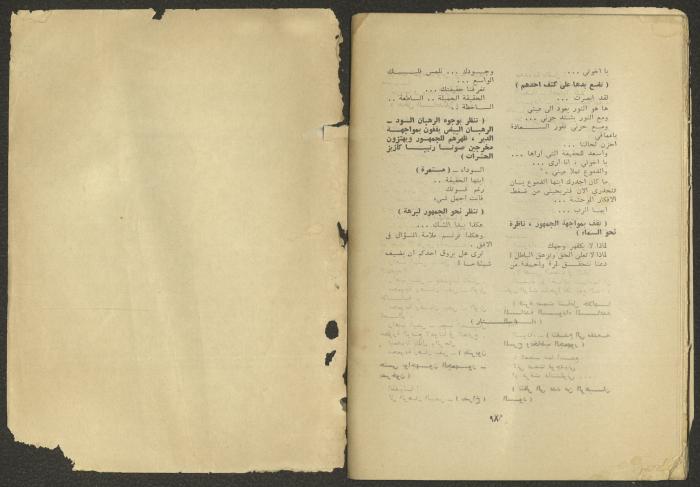 يا اخوتي ...
( تضع يدها على كتف احدهم )
لقد ابصرت ...
ها هو النور يعود الى عيني
ومع النور يشتد حزني ...
ومع حزني تغور السعادة
باعماقي
احزن لحالنا ...
واسعد للحقيقة التي اراها ...
يا اخوتي ، انا ارى ...
والدموع تملأ عيني .
ما كان اجدرك ايتها الدموع بان
تنحدري الان فتريحيني من ضغط
الافكار الموحشة ...
ايها الرب ...
( تقف بمواجهة الجمهور ، ناظرة
نحو السماء )
لماذا لا يكفهر وجهك
لماذا لا تعلي الحق وتزهق الباطل !
دعنا نتحقق مرة واحدة من
وجودك ... نلمس قلبك
الواسع ...
تعرفنا حقيقتك ...
الحقيقة الجميلة .. الساطعة ..
الخاطفة ..
( تنظر بوجوه الرهبان السود ــ
الرهبان البيض يقفون بمواجهة
الدير ، ظهرهم للجمهور ويهتزون
مخرجين صوتا رتيبا كازيز
الحشرات )
السوداء ــ ( مستمرة )
ايتها الحقيقة ..
رغم قسوتك
فانت اجمل شيء
( تنظر نحو الجمهور لبرهة )
هكذا يبدأ الشك ...
وهكذا ترتسم علامة السؤال في
الافق .
ترى هل يروق احدكم ان يضيف
شيئا ما !
٩٨